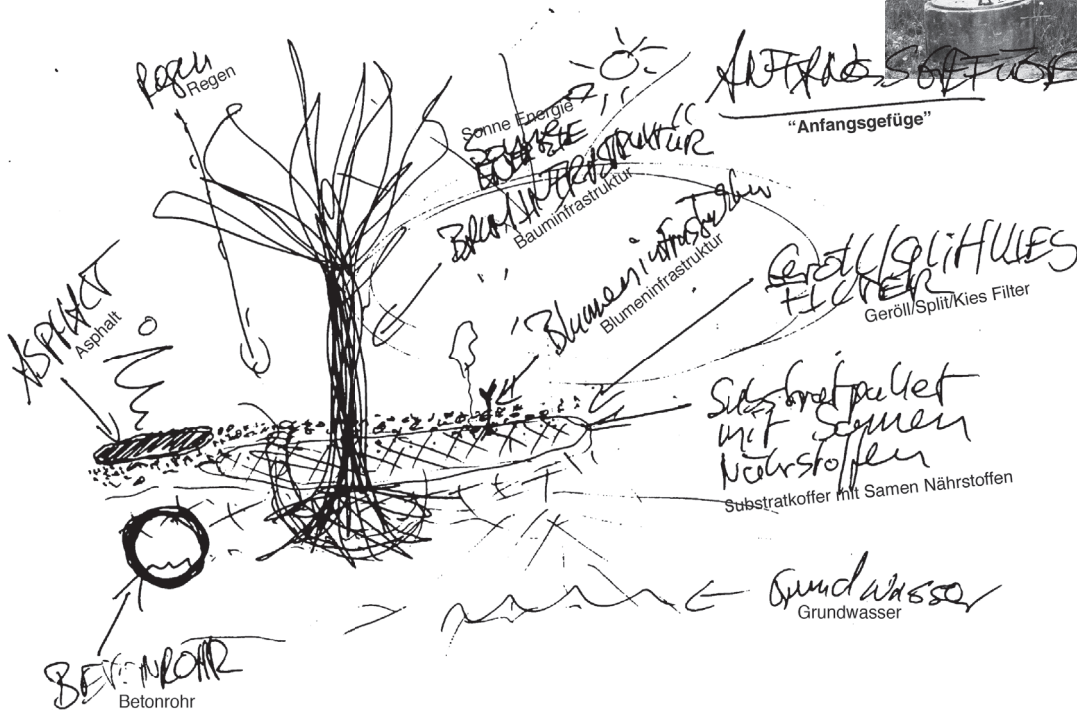 Regen
Regen
Sonne Energie
SONNE
ENERGIE
ANFANGSGEFÜGE
“Anfangsgefüge”
BAUMINFRASTRUKTUR
Bauminfrastruktur
Blumeninfrastruktur
Blumeninfrastruktur
Geröll/Split/KIES
FILTER
Geröll/Split/Kies Filter
ASPHALT
Asphalt
Substratpaket
mit Samen
Nährstoffen
Substratkoffer mit Samen Nährstoffen
Grundwasser
Grundwasser
BETONROHR
Betonrohr